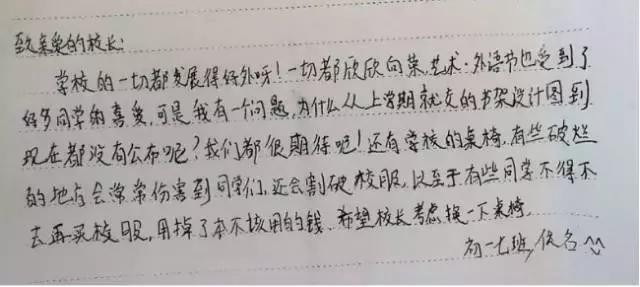 致亲爱的校长:
学校的一切都发展得好好呀！一切都欣欣向荣,艺术·外语节也受到了
好多同学的喜爱,可是我有一个问题,为什么从上学期就交的书架设计图到
现在都没有公布呢?我们都很期待吧!还有学校的桌椅,有些破烂
的地方会常常伤害到同学们,还会割破校服,以至于有些同学不得不
去再买校服,用掉了本不该用的钱.希望校长考虑换一下桌椅.
初一七班,佚名